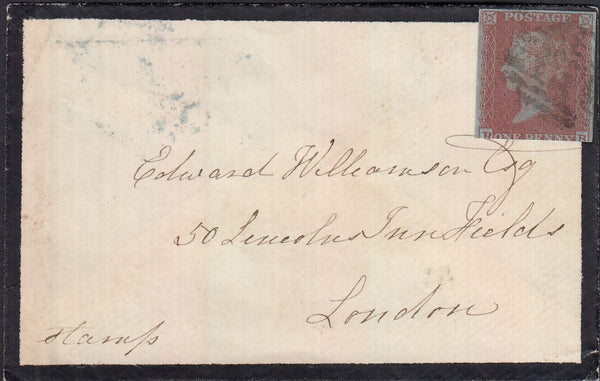 POSTAGE
ONE PENNY
Edward Williamson Esq
50 Lincolns Inn Fields
London
Stamp